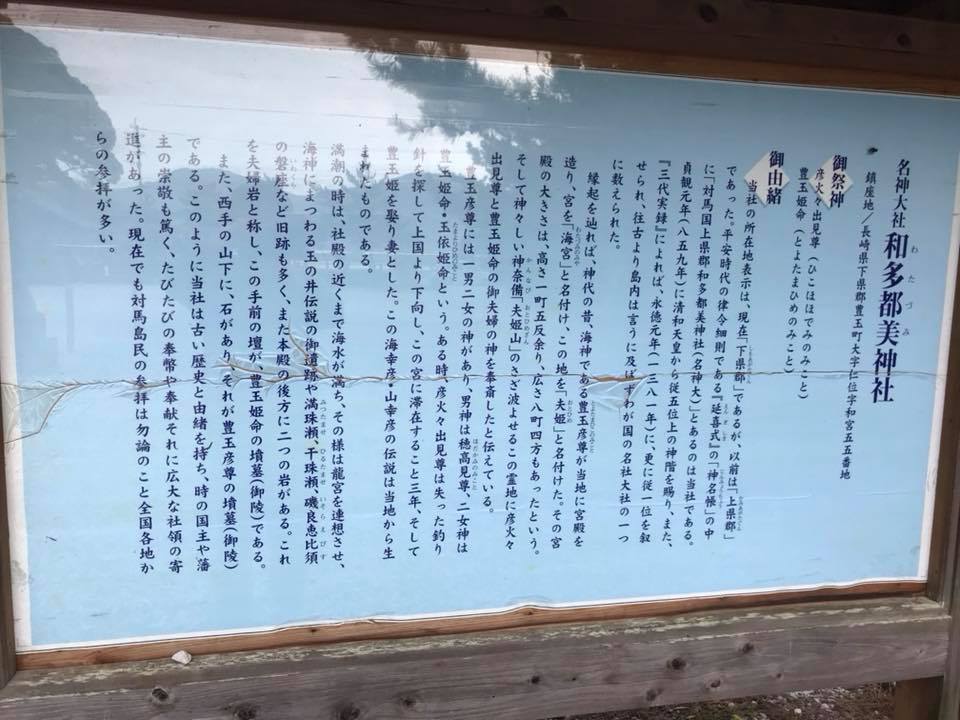 名神大社 和多都美神社
わたづみ
鎮座地/長崎県下県郡豊玉町大字仁位字和宮五五番地
御祭神
彦火々出見尊(ひこほほでみのみこと)
豊玉姫命(とよたまひめのみこと)
御由緒
当社の所在地表示は、現在「下県郡」であるが、以前は「上県郡」
であった。平安時代の律令細則である『延喜式』の「神名帳」の中
に「対馬国上県郡和多都美神社(名神大)」とあるのは当社である。
貞観元年(八五九年)に清和天皇から従五位上の神階を賜り、また、
『三代実録』によれば、永徳元年(一三八一年)に、更に従一位を叙
せられ、往古より島内は言うに及ばずわが国の名社大社の一つ
に数えられた。
縁起を辿れば、神代の昔、海神である豊玉彦尊が当地に宮殿を
造り、宮を「海宮」と名付け、この地を「夫姫」と名付けた。その宮
殿の大きさは、高さ一町五反余り、広さ八町四方もあったという。
そして神々しい神奈備「夫姫山」のさざ波よせるこの霊地に彦火々
出見尊と豊玉姫命の御夫婦の神を奉斎したと伝えている。
豊玉彦尊には一男二女の神があり、男神は穂高見尊、二女神は
豊玉姫命・玉依姫命という。ある時、彦火々出見尊は失った釣り
針を探して上国より下向し、この宮に滞在すること三年、そして
豊玉姫を娶り妻とした。この海幸彦・山幸彦の伝説は当地から生
まれたものである。
満潮の時は、社殿の近くまで海水が満ち、その様は龍宮を連想させ、
海神にまつわる玉の井伝説の御遺跡、満珠瀬、干珠瀬、磯良恵比須
の磐座など旧跡も多く、また本殿の後方に二つの岩がある。これ
を夫婦岩と称し、この手前の壇が、豊玉姫命の墳墓(御陵)である。
また、西手の山下に、石があり、それが豊玉彦尊の墳墓(御陵)
である。このように当社は古い歴史と由緒を持ち、時の国主や藩
主の崇敬も篤く、たびたびの奉幣や奉献それに広大な社領の寄
進があった。現在でも対馬島民の参拝は勿論のこと全国各地か
らの参拝が多い。